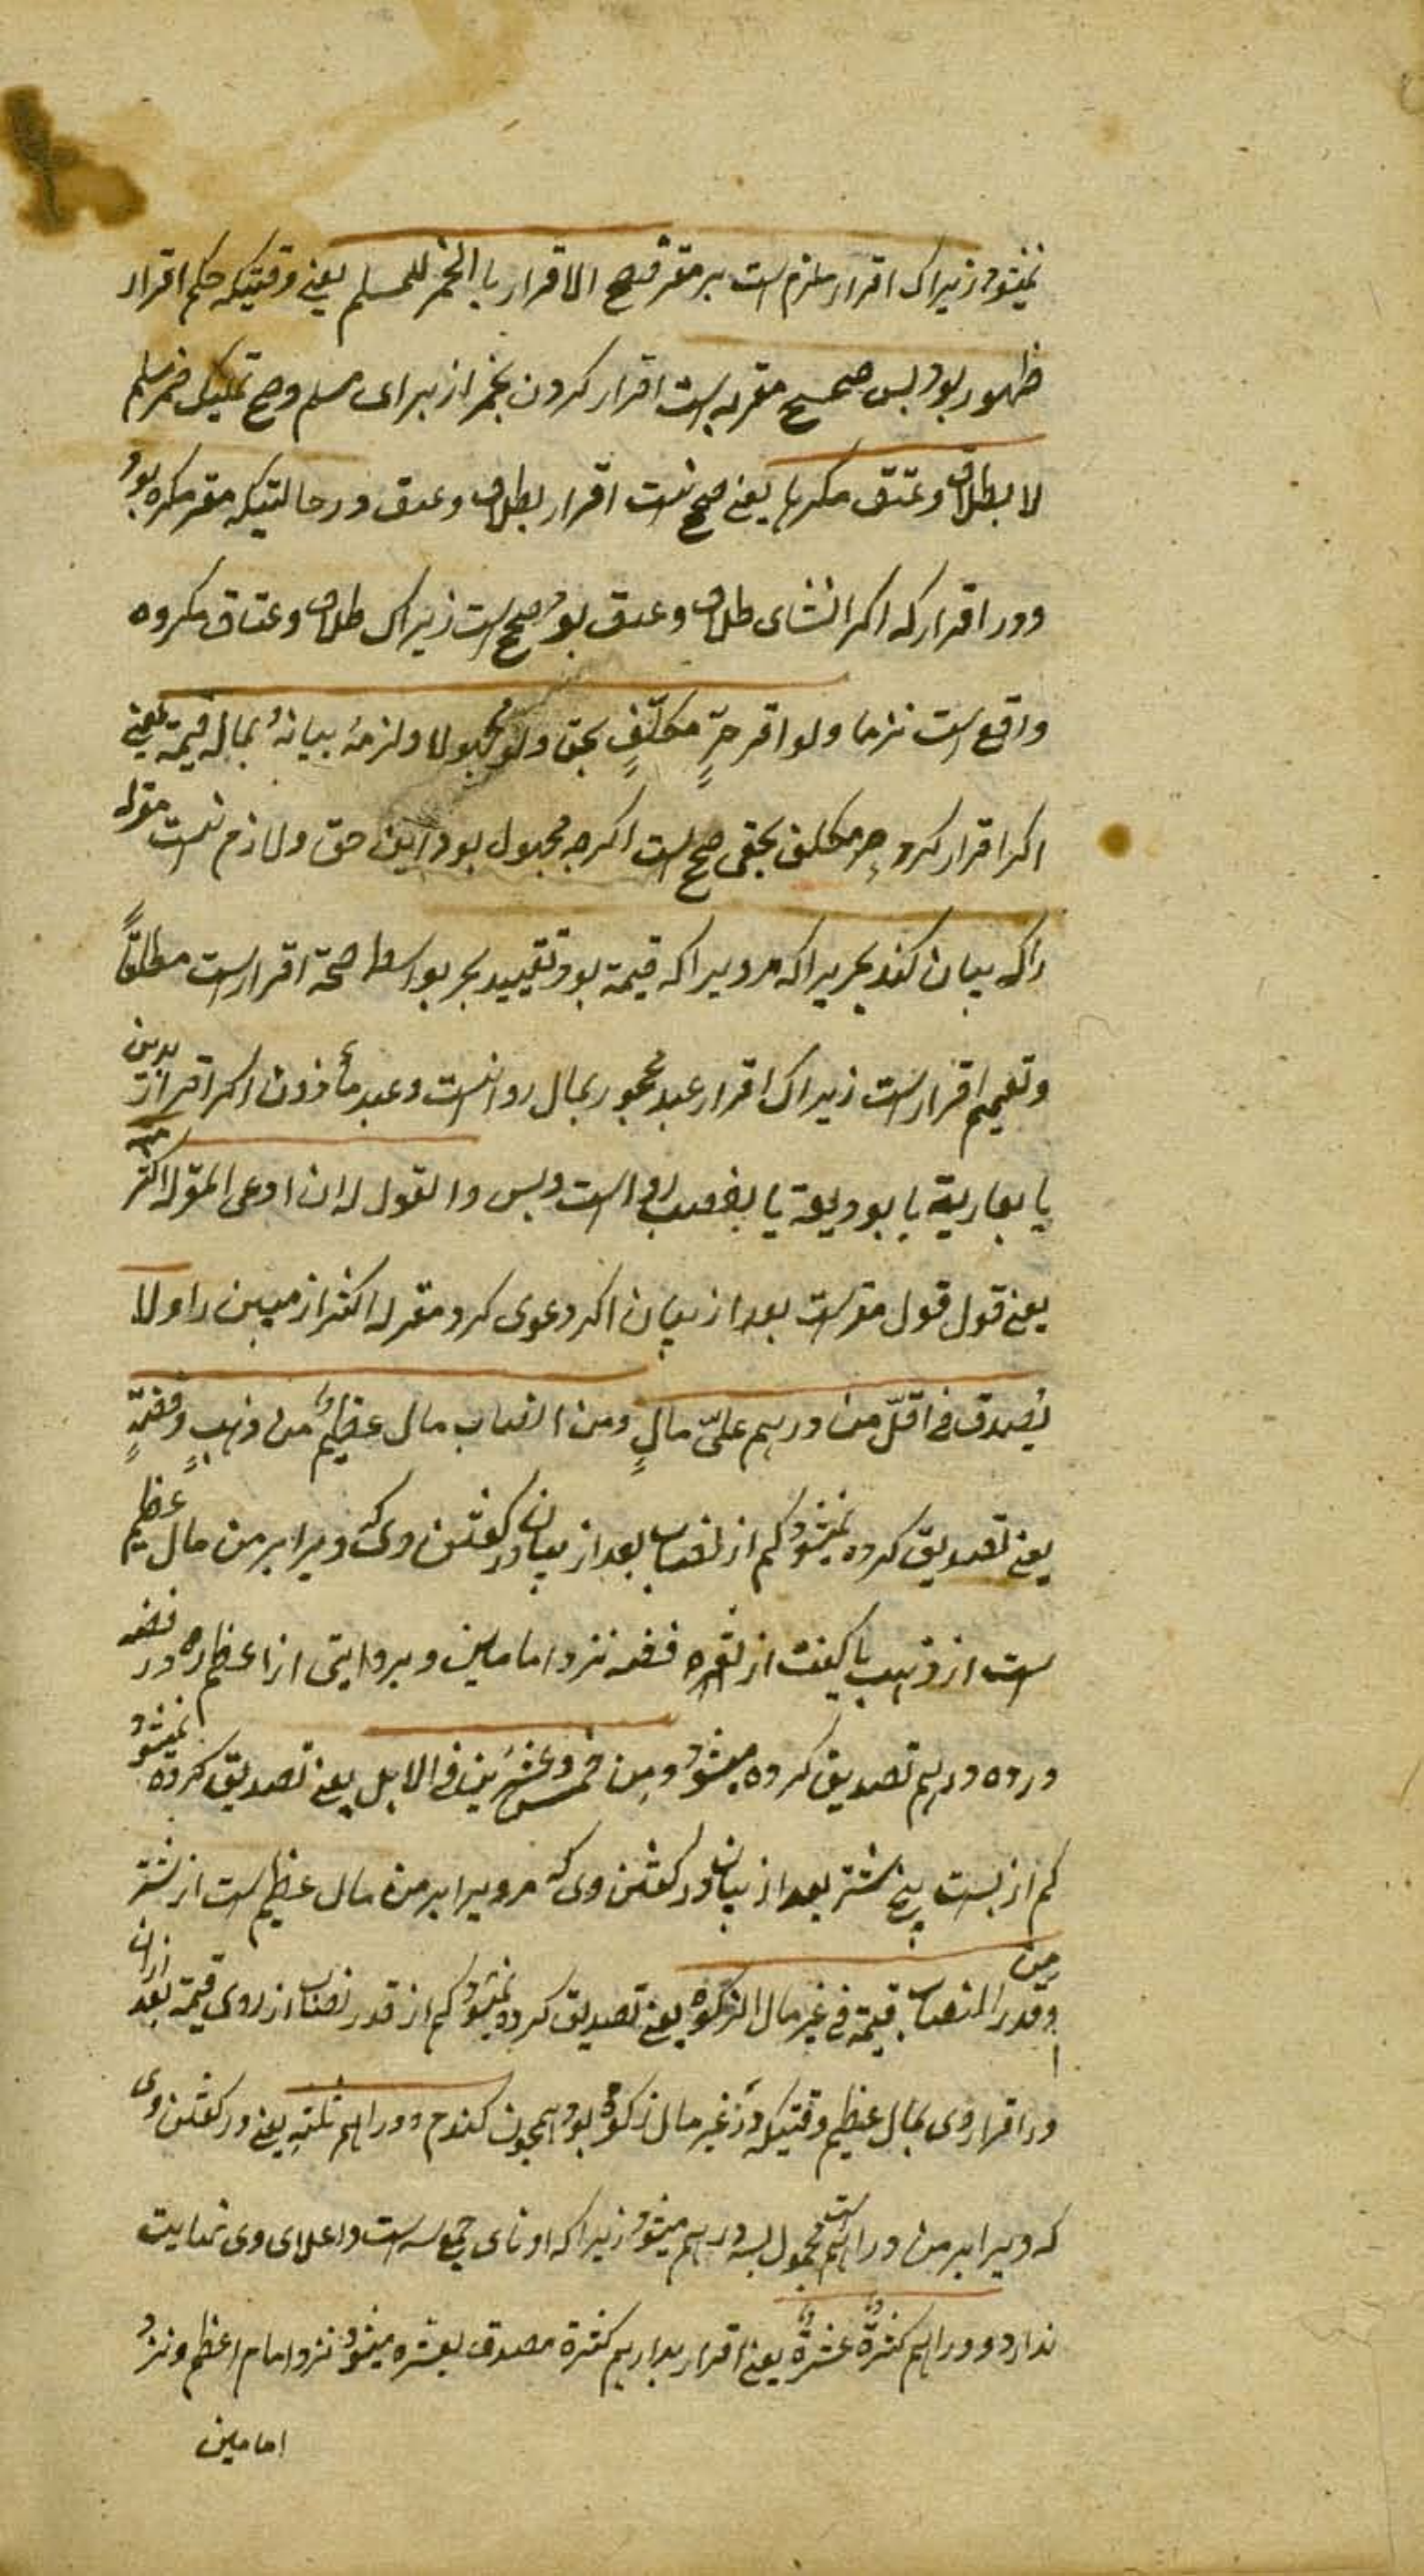 نمیشود زیراک اقرار ملزم است بر مقر فصح الاقرار بالخمر للمسلم یعنے وقتیکه حکم اقرار
ظهور بود پس صحیح مقر به است اقرار کردن بخمر از برای مسلم وصح تملیک خمر مسلم
لا بطلاق وعتق مکرها یعنے صحیح نیست اقرار بطلاق وعتق در حالتیکه مقر مکره بود
ودر اقرار که اکر انشای طلاق وعتق بود صحیح است زیراک طلاق وعتاق مکروه
واقع است نزد ما ولو اقر حرٌ مکلفٍ بحق ولو مجهولا ولزمهُ بیانهُ بماله قیمة یعنے
اکر اقرار کرد حر مکلف بحقی صحیح است اکرچه مجهول بود این حق ولازم نیست مقر له
را که بیان کند بچیزیراکه مر ویراکه قیمة بود وتقیید بحر بواسطه صحة اقرار است مطلقًا
وتعمیم اقرار است زیراک اقرار عبد محجور بمال روا نیست وعبد مأذون اکر اقرار بدین
یا بعاریة یا بودیعة یا بغصب روا است وبس والقول له ان ادعی المقر له اکثر منه
یعنے قول قول مقر است بعد از بیان اکر دعوی کرد مقر له اکثر از مبین را ولا
یُصدق فی اقلّ من درهم علیّ مالٍ ومن النصاب مال عظیمٌ من ذهبٍ وفضةٍ
یعنے تصدیق کرده نمیشود کم از نصاب بعد از بیان در کفتن وی که ویرا بر من مال عظیم
است از ذهب یا کفت از نقره فضه نزد امامین وبروایتی از اعظم ره در فضه
در ده درهم تصدیق کرده میشود ومن خمس وعشرین فی الابل یعنے تصدیق کرده نمیشود
کم از بست پنج شتر بعد از بیان در کفتن وی که مر ویرا بر من مال عظیم است از شتر
ومن قدر النصاب قیمة فی غیر مال الزکوة یعنے تصدیق کرده نمیشود کم از قدر نصاب از روی قیمة بعد ازان
در اقرار وی بمال عظیم وقتیکه در غیر مال زکوة بود همچون کندم ودراهم ثلثة یعنے در کفتن وی
که ویرا بر من دراهم است محمول بسه درهم میشود زیراکه ادنای جمع سه است واعلای وی نهایت
ندارد ودراهم کثیرة عشرة یعنے اقرار بدراهم کثیرة مصدق بعشره میشود نزد امام اعظم ونزد
امامین